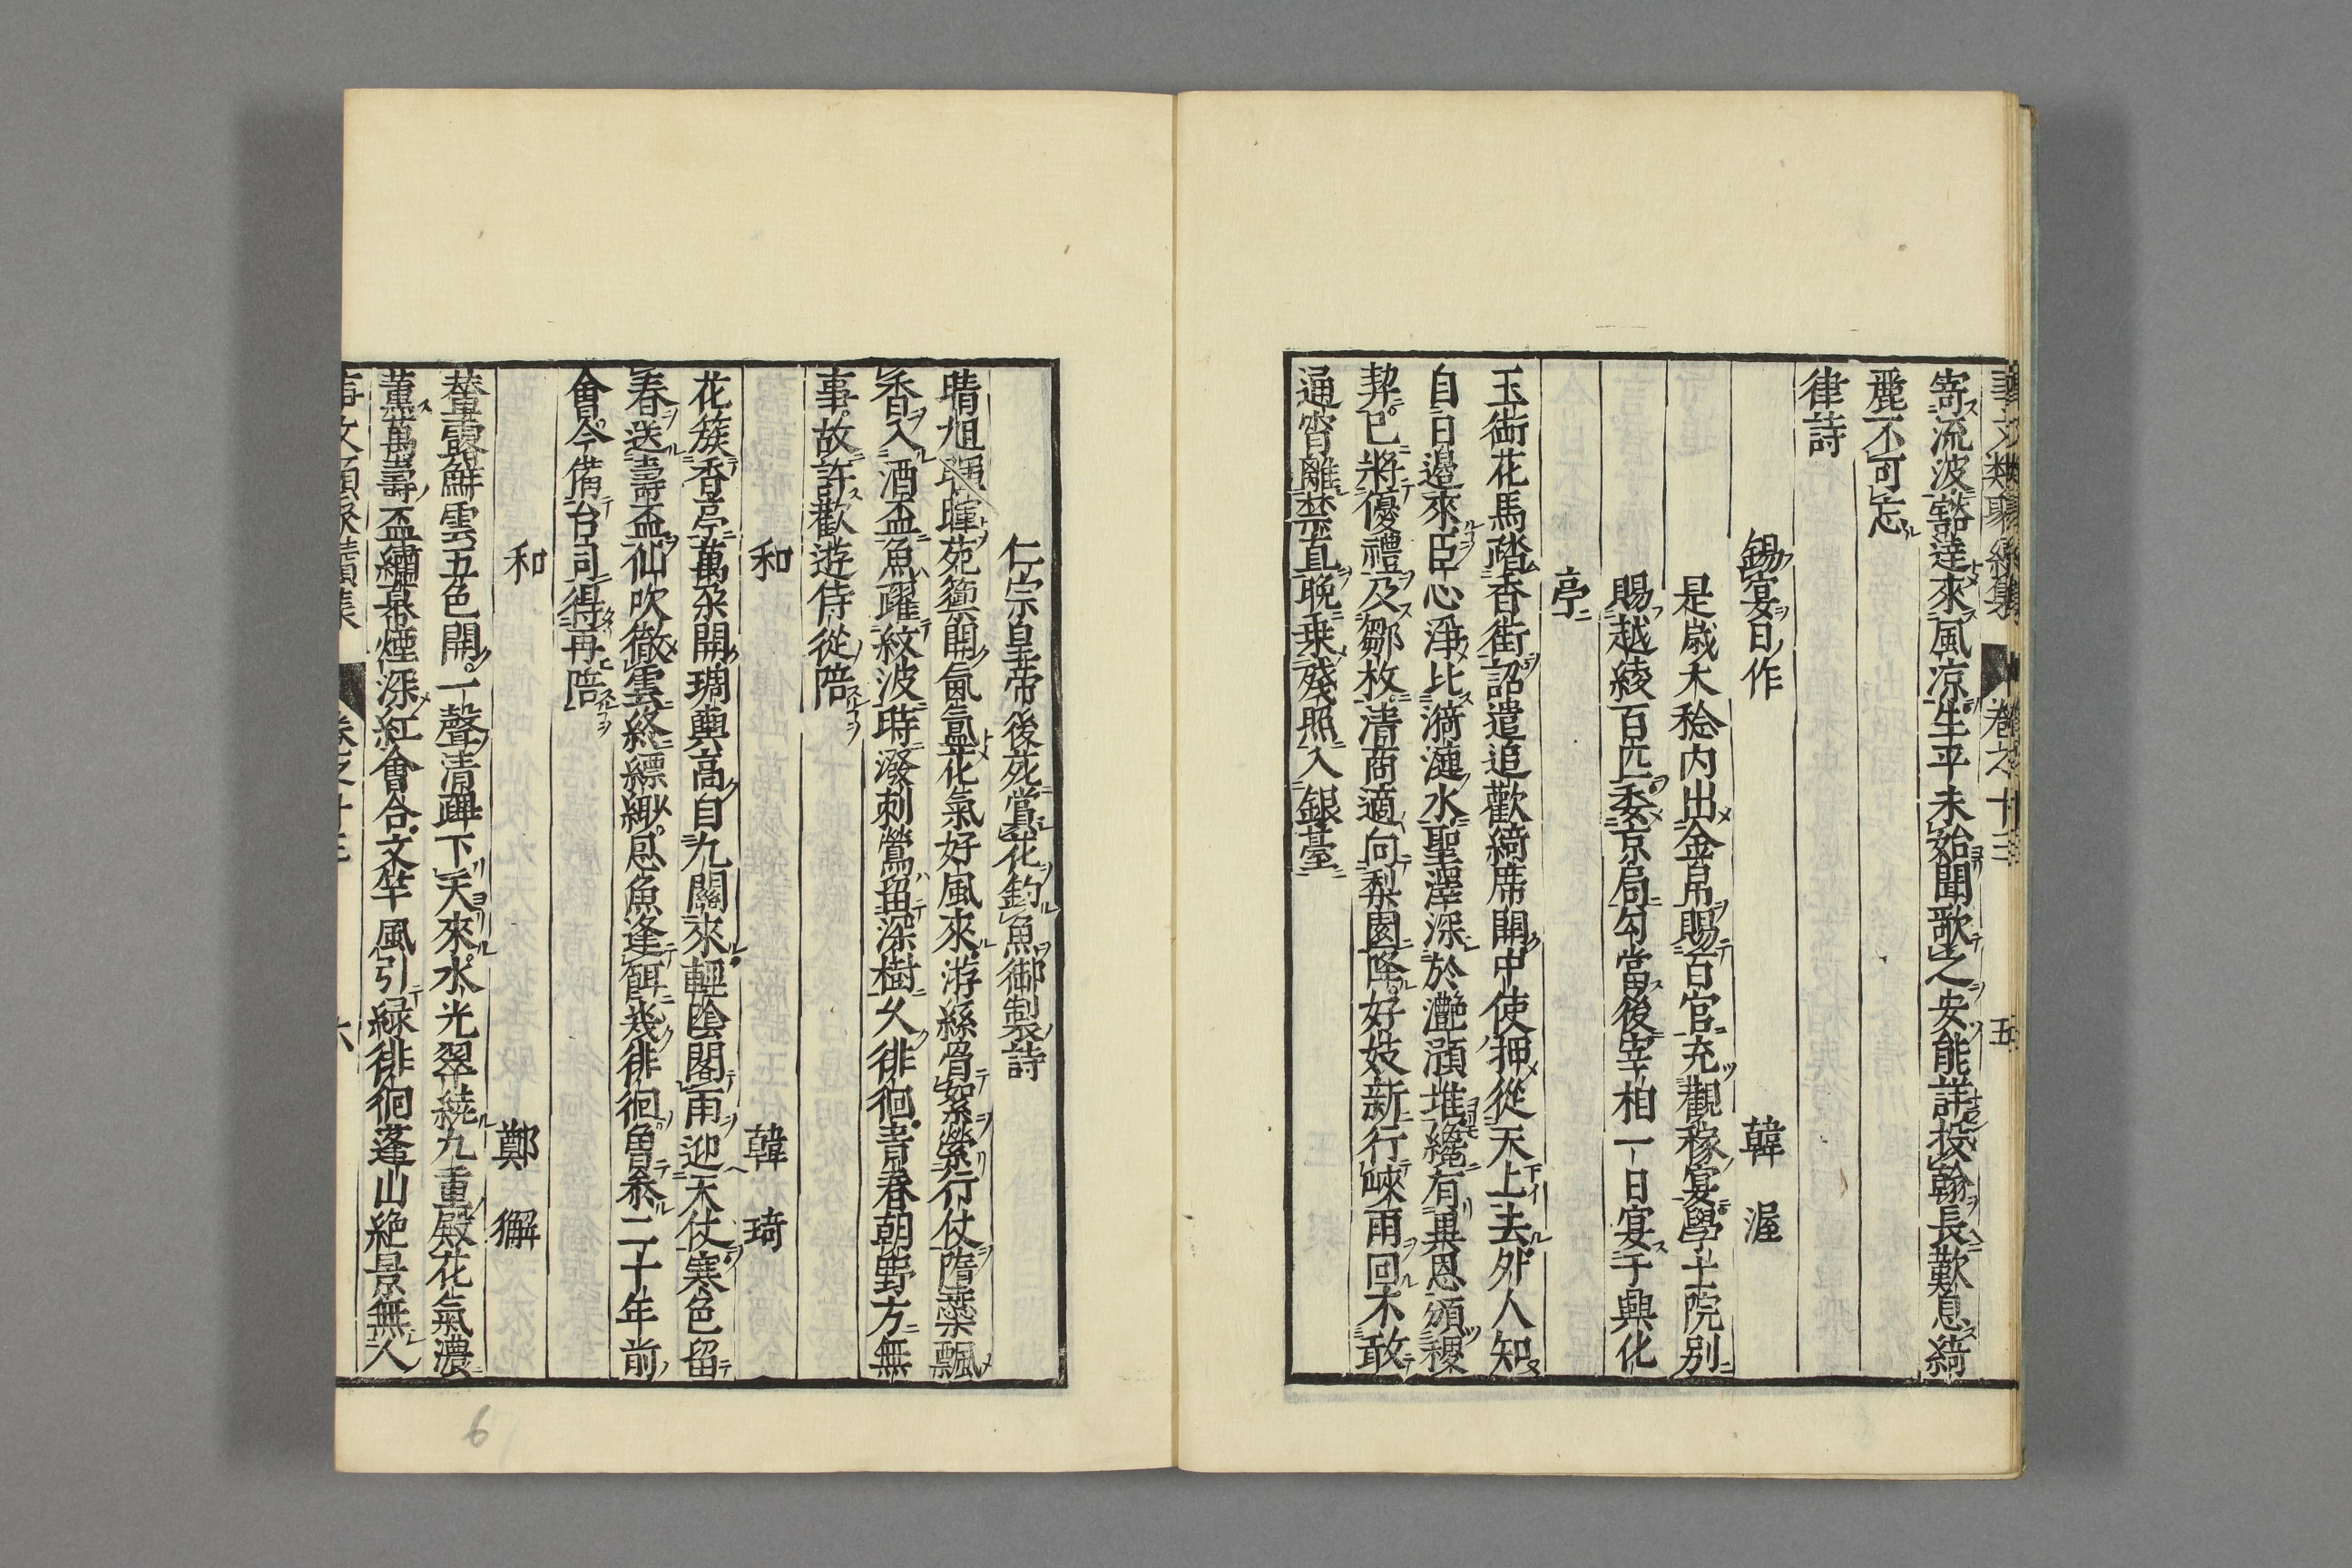 事文類聚續集 卷之十三 五
寄流波豁達來風凉生平未始聞歌之安能詳投翰長歎息綺
麗不可忘
律詩
錫宴日作 韓渥
是歲大稔内出金帛賜百官充觀稼宴學士院別
賜越綾百匹委京局勾當後宰相一日宴于興化
亭
玉銜花馬踏香街詔遣追歡綺席開中使押從天上去外人知
自日邊來臣心淨比漪漣水聖澤深於灔澦堆纔有異恩頒稷
契已將優禮及鄒枚清商適向梨園降好妓新行峽雨回不敢
通宵離禁直晚乗殘照入銀臺
仁宗皇帝後苑賞花釣魚御製詩
晴旭暉暉苑籞開氤氳花氣好風來游絲罥絮縈行仗墮蘂飄
香入酒盃魚躍紋波時潑刺鶯留深樹久徘徊青春朝野方無
事故許歡遊侍從陪
和 韓琦
花簇香亭萬朶開珮輿高自九關來輕陰閣雨迎天仗寒色留
春送壽盃仙吹徹雲終縹緲恩魚逢餌幾徘徊曽叅二十年前
會今備台司得再陪
和 鄭獬
輦露鮮雲五色開一聲清蹕下天來水光翠繞九重殿花氣濃
薰萬壽盃繡幕煙深紅會合文竿風引緑徘徊蓬山絶景無人
事文類聚續集 卷之十三 六
6